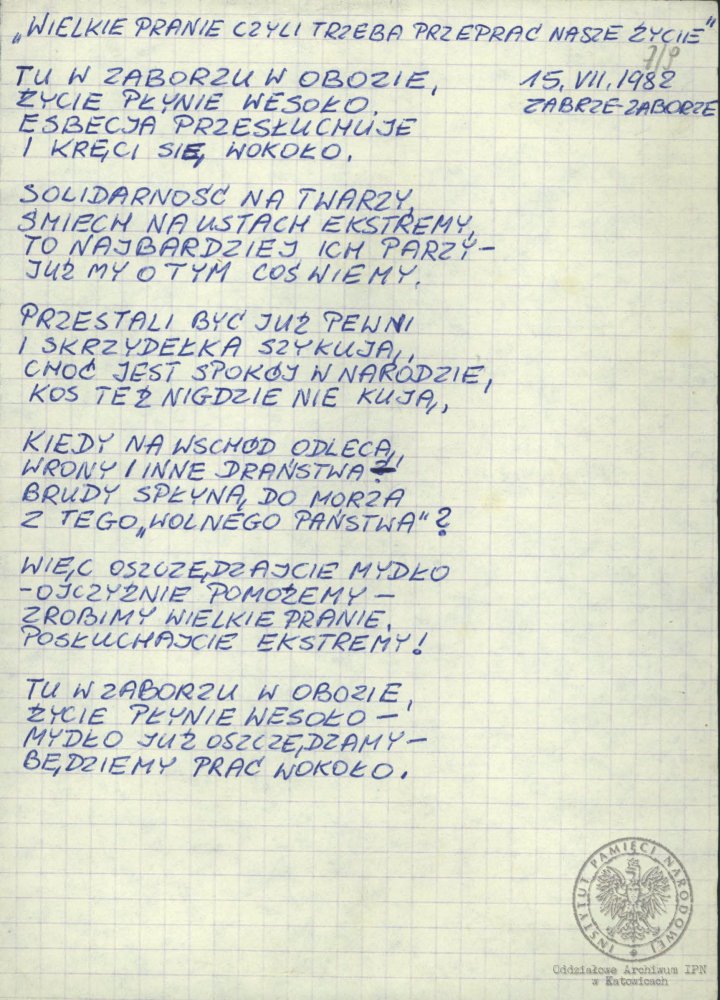 „WIELKIE PRANIE CZYLI TRZEBA PRZEPRAĆ NASZE ŻYCIE"
7/9
15. VII. 1982
ZABRZE-ZABORZE
TU W ZABORZU W OBOZIE,
ŻYCIE PŁYNIE WESOŁO.
ESBECJA PRZESŁUCHUJE
I KRĘCI SIĘ WOKOŁO.
SOLIDARNOŚĆ NA TWARZY,
ŚMIECH NA USTACH EKSTREMY,
TO NAJBARDZIEJ ICH PARZY-
JUŻ MY O TYM COŚ WIEMY.
PRZESTALI BYĆ JUŻ PEWNI
I SKRZYDEŁKA SZYKUJĄ,
CHOĆ JEST SPOKÓJ W NARODZIE,
KOS TEŻ NIGDZIE NIE KUJĄ,
KIEDY NA WSCHÓD ODLECĄ,
WRONY I INNE DRAŃSTWA
BRUDY SPŁYNĄ DO MORZA
Z TEGO „WOLNEGO PAŃSTWA"?
WIĘC OSZCZĘDZAJCIE MYDŁO
-OJCZYŹNIE POMOŻEMY-
ZROBIMY WIELKIE PRANIE,
POSŁUCHAJCIE EKSTREMY!
TU W ZABORZU W OBOZIE,
ŻYCIE PŁYNIE WESOŁO-
MYDŁO JUŻ OSZCZĘDZAMY-
BĘDZIEMY PRAĆ WOKOŁO.
INSTYTUT PAMIĘCI NARODOWEJ
Oddziałowe Archiwum IPN
w Katowicach